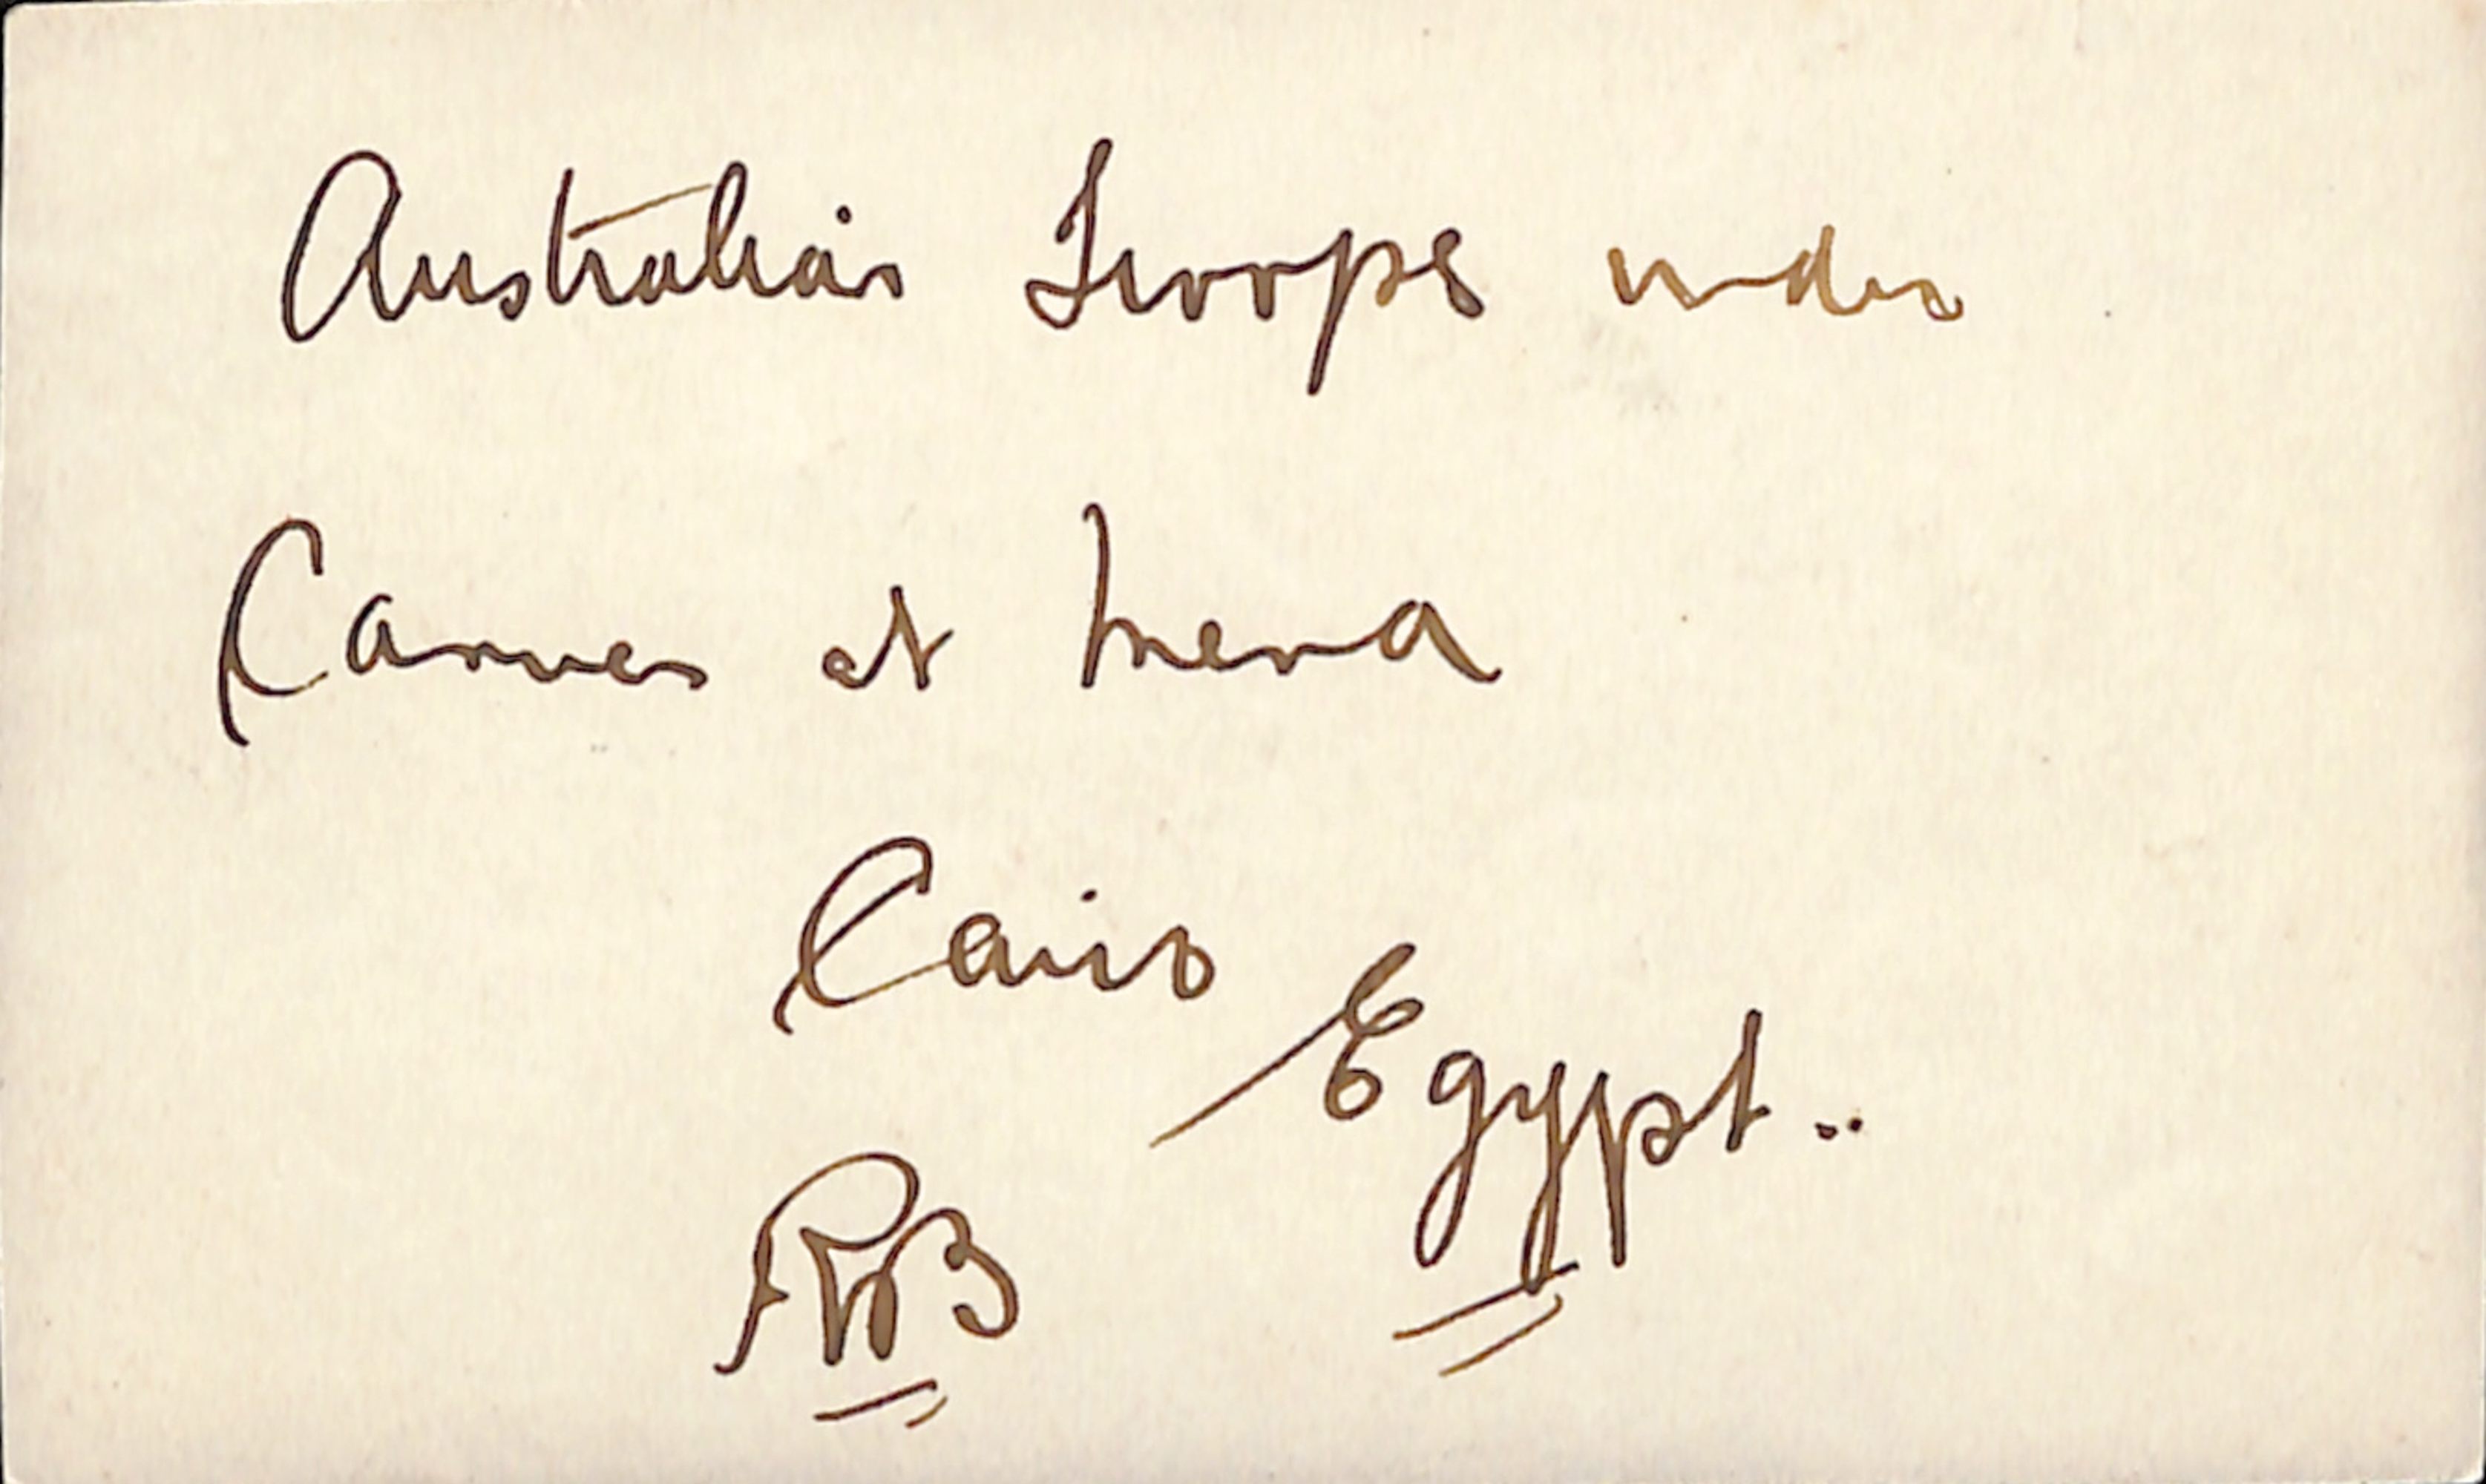 Australian Troops under
Canvas at Mena
Cairo
Egypt..
RWB